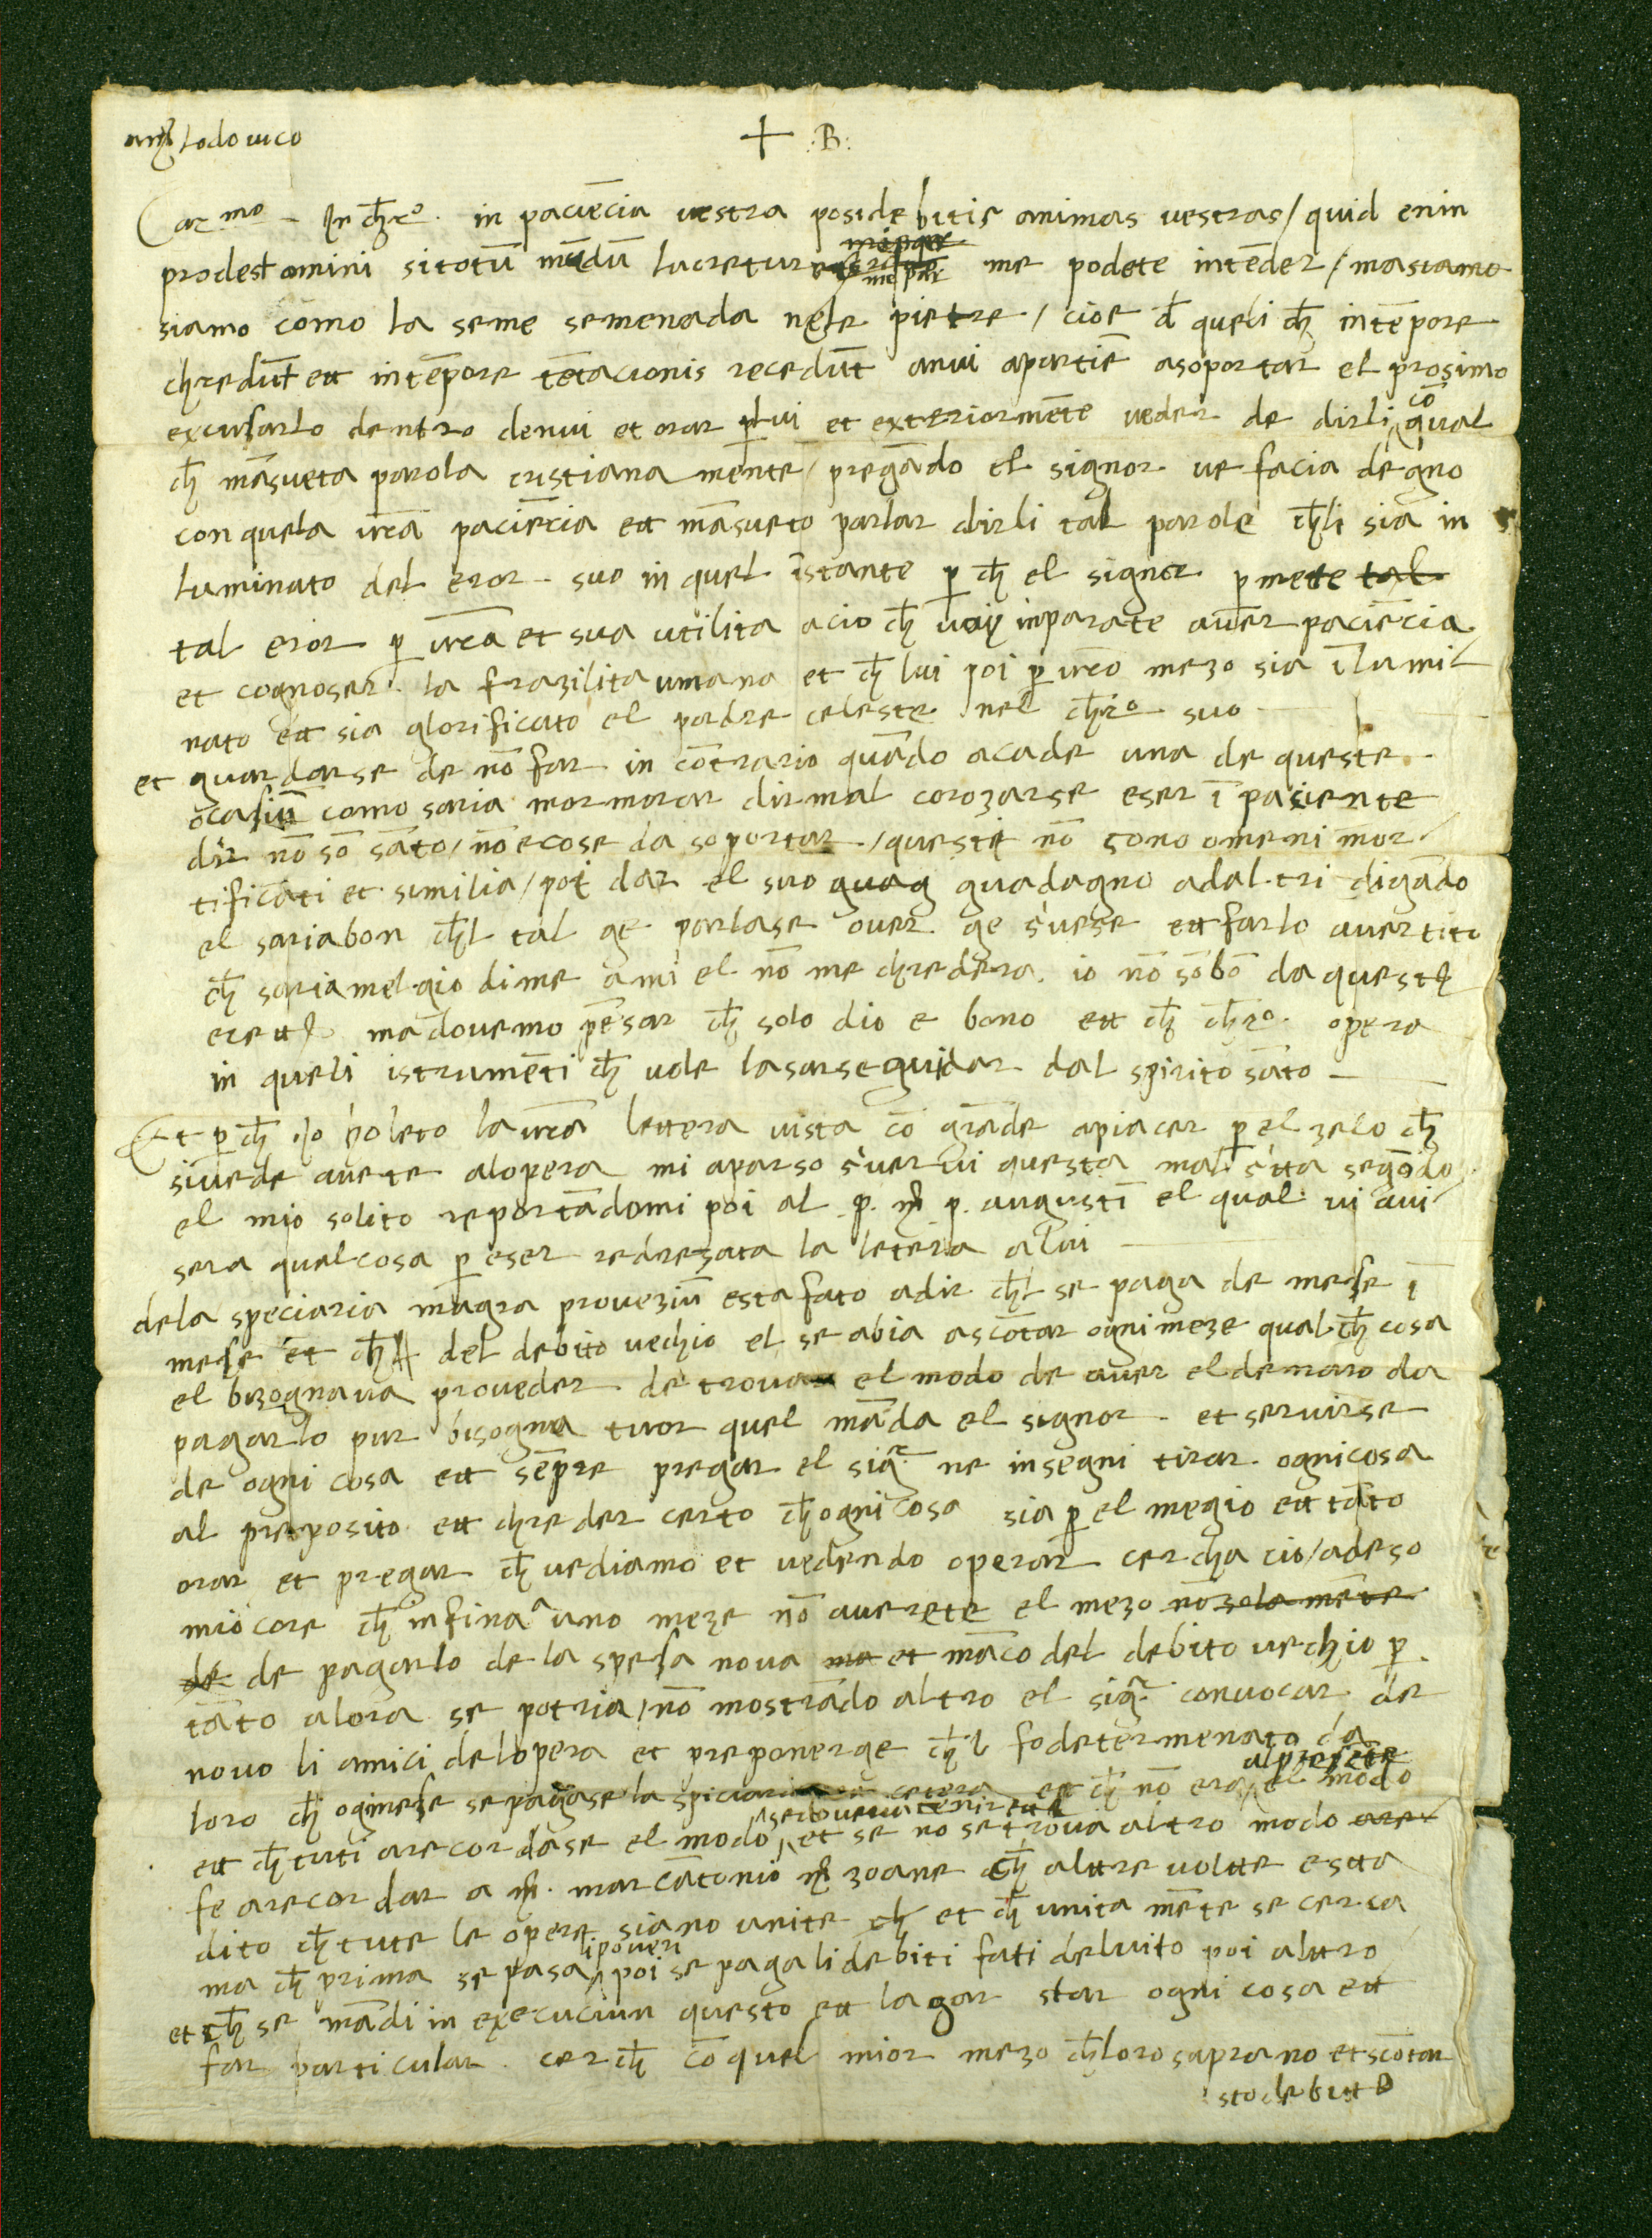 Lodovico
+ :B:
Car.mo In chr.o in paciēcia vestra posidebitis animas vestras / quid enin
prodest omini si totū mūdū lucretur me podete intēder / ma siamo
siamo como la seme semenada nele pietre / cioe d queli ch̄ in tēpore
chredūt ett in tēpore tētacionis recedūt a nui apartiē a soportar el prosimo
excusarlo dentro de nui et orar p lui et exteriormēte veder de dirli cō qual
ch̄ māsveta parola cristiana mente / pregādo el signor ve facia degno
con quela vrā paciēcia ett māsueto parlar dirli tal parole ch̄ li sia in
luminato del eror suo in quel istante p ch̄ el signor p mete tal
tal eror p vrā et sua utilita acio ch̄ vui inparate aver paciēcia
et cognoser la frazilita umana et ch̄ lui poi p vro mezo sia ilumi
nato ett sia glorificato el padre celeste nel chr.o suo
et guardarse de nō far in cōtrario quādo acade una de queste
ocasiū como saria mormorar dir mal corozarse eser ī paciente
dir nō sō sāto / nō e cose da soportar / queste nō sono omeni mor
tificati et similia / poi dar el suo guag guadagno ad altri digādo
el saria bon ch̄l tal ge parlase over ge schvese ett farlo avertito
ch̄ saria melgio di me a mi el nō me chredera io nō sō bō da queste
ma dovemo pēsar ch̄ solo dio e bono ett ch̄ chr.o opera
in queli istrumēti ch̄ vole lasarse guidar dal spirito sāto
Et p ch̄ io ho leto la vrā lettera vista cō grāde apiacer p el zelo ch̄
si vede avete al opera mi aparso schrivervi questa mal schrita segōdo
el mio solito reportādomi poi al p. m̄ p. augustī el qual vi avi
sera qual cosa p eser redresata la letera a lui
de la speciaria magra proveziū e sta fato a dir ch̄l se paga de mese ī
mese et ch̄ del debito vechio el se abia a scōtar ogni meze qual ch̄ cosa
el bizognava proveder de trovar el modo de aver el denaro da
pagarlo pur bisogna tuor quel māda el signor et servirse
de ogni cosa ett sēpre pregar el sig.r ne insegni tirar ogni cosa
al preposito ett chreder certo ch̄ ogni cosa sia p el megio ett tāto
orar et pregar ch̄ vediamo et vedendo operar cercha cio / adeso
mio core ch̄ infina a uno meze nō averete el mezo nō sola mēte
de de pagarlo de la spesa nova ma et māco del debito vechio p
tāto alora se potria / nō mostrādo altro el sig.r convocar de
novo li amici de lopera et preponerge ch̄l fo determenato da
loro ch̄ ogni mese se pagase la spiciaria et cetera et ch̄ nō era al presēte el modo
ett ch̄ tuti arecordase el modo se doveva tenir et se no se trova altro modo are
fe arecordar a m̄. marcātonio m̄ zoane ch̄ alttre voltte e stta
dito ch̄ tute le opere siano unite ch̄ et ch̄ unita mēte se cerca
ma ch̄ prima se pasa i poveri poi se paga li debiti fati del vito poi alttro
et ch̄ se mādi in execuciun questo ett lagar star ogni cosa ett
far particular cerch̄ cō quel mior mezo ch̄ loro saprano et scōtar
sto debitto